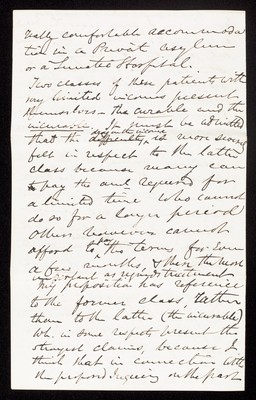 ually comfortable accommoda
tion in a Private asylum
or a Lunatic Hospital.
Two classes of these patients with
very limited income present
themselves – the curable and the
incurable. It must be admitted
that the difficulty is more severely
felt in respect to the latter
class because many can
pay the amt required for
a limited time who cannot
do so for a longer period
others however cannot
afford to pay the terms for even
a few months & then the most
important as regards treatment
My proposition has reference
to the former class, rather
than to the latter (the incurable)
wh. in some respects present the
strongest claims, because I
think that in connection with
the proposed Inquiry on the part